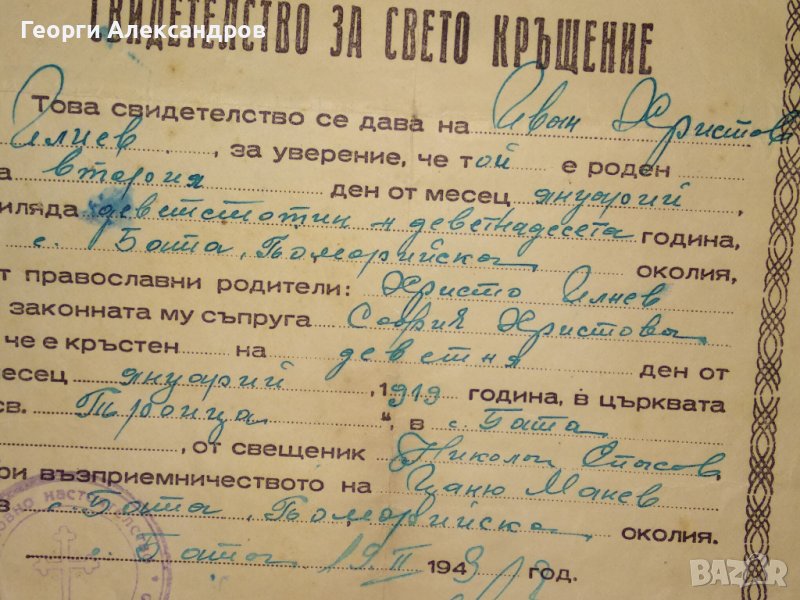 Георги Александров
СВИДЕТЕЛСТВО ЗА СВЕТО КРЪЩЕНИЕ
Това свидетелство се дава на Иван Христов
Илиев, за уверение, че той е роден
а втория ден от месец януарий,
иляда деветстотин и деветнадесета година,
с. Бата, Поморийска околия,
т православни родители: Христо Илиев
законната му съпруга София Христова
че е кръстен на деветия ден от
месец януарий, 1919 година, в църквата
св. Троица", в с. Бата
, от свещеник Николай Спасов
ри възприемничеството на Цаню Манев
в с. Бата, Поморийска околия.
с. Бата 19.II 1943 год.
BAZAR